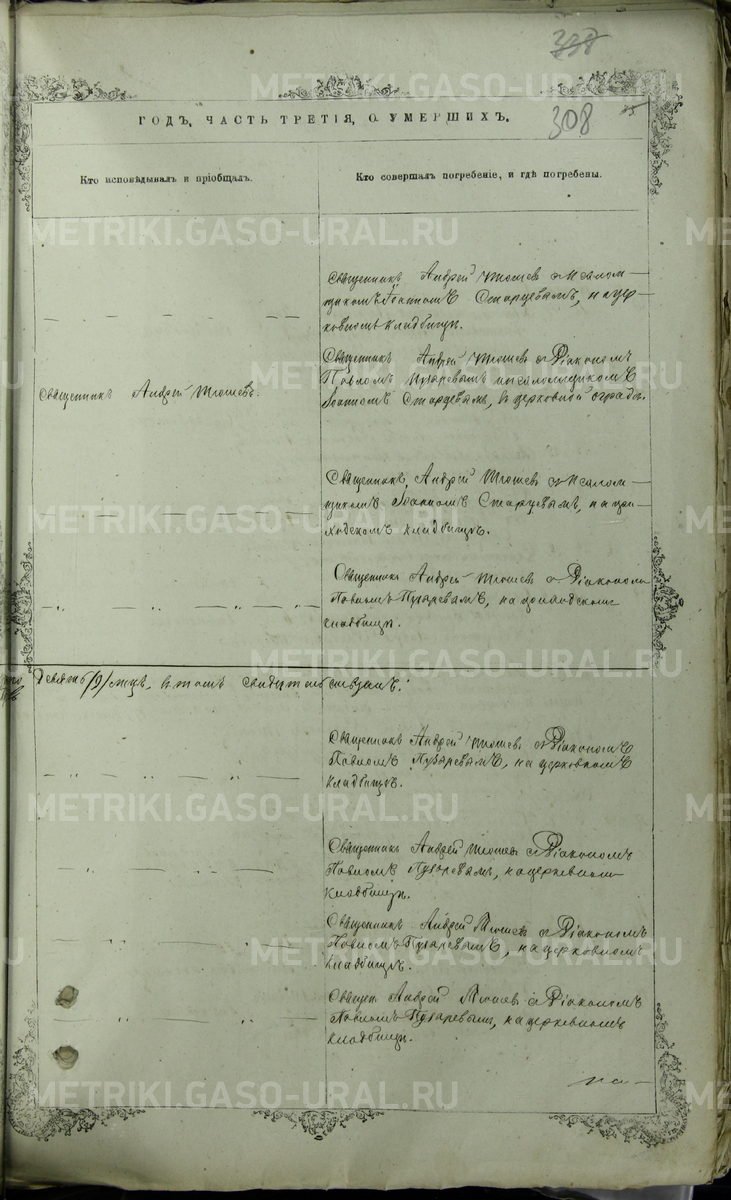 338
308
ГОДЪ, ЧАСТЬ ТРЕТІЯ, О УМЕРШИХЪ.
Кто исповѣдывалъ и пріобщалъ.
Кто совершалъ погребеніе, и гдѣ погребены.
Священникъ Андрей Тюшевъ и Псалом-
щикомъ Іоанномъ Старцевымъ, на цер-
ковномъ кладбищѣ.
Священникъ Андрей Тюшевъ.
Священникъ Андрей Тюшев с Діакономъ
Павломъ и псаломщикомъ
Іоанномъ Старцевымъ, въ церковной оградѣ.
Священникъ, Андрей Тюшев с Псалом-
щикомъ Іоанномъ Старцевымъ, на при-
ходскомъ кладбищѣ.
Священникъ Андрей Тюшев с Діакономъ
Павломъ на
кладбищѣ.
девять /9/ въ томъ свидѣтельствуемъ:
Священникъ Андрей Тюшев с Діакономъ
Павломъ на церковномъ
кладбищѣ.
Священникъ Андрей Тюшев с Діакономъ
Павломъ на церковномъ
кладбищѣ.
Священникъ Андрей Тюшев с Діакономъ
Павломъ на церковномъ
кладбищѣ.
Священ Андрей Тюшев с Діакономъ
Павломъ на церковномъ
кладбищѣ.
METRIKI.GASO-URAL.RU